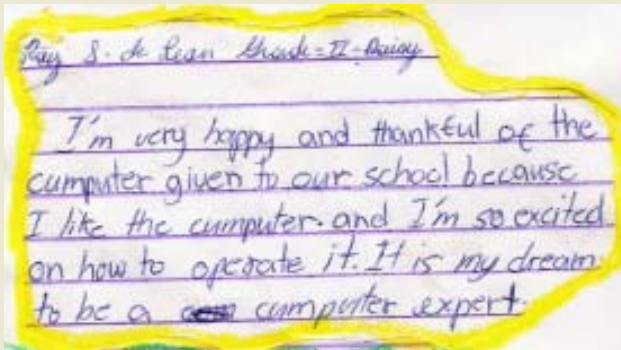 Ray S. de Leon Grade-II-Daisy
I'm very happy and thankful of the
cumputer given to our school because
I like the cumputer. and I'm so excited
on how to operate it. It is my dream.
to be a cumputer expert.